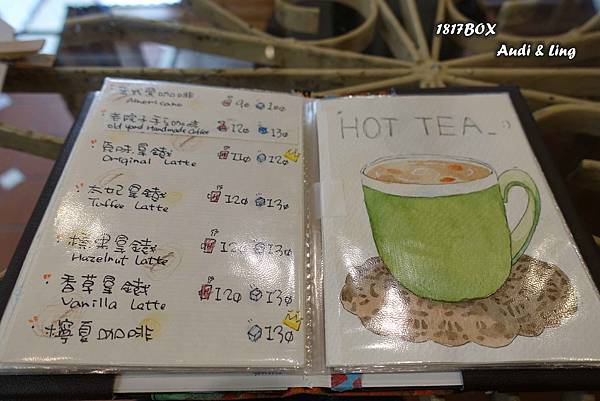 1817BOX
Audi & Ling
美式黑咖啡
Americano 90 100
老院子手工咖啡
old yard Handmade Coffee 120 130
原味拿鐵
Original Latte 110 120
太妃拿鐵
Toffee Latte 120 130
榛果拿鐵
Hazelnut Latte 120 130
香草拿鐵
Vanilla Latte 120 130
檸夏咖啡 130
HOT TEA_ :)